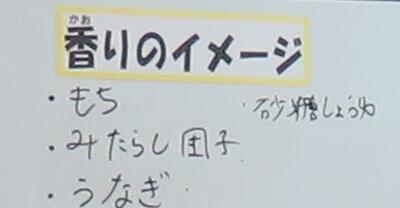 かお
香りのイメージ
・もち
・砂糖しょうゆ
・みたらし団子
・うなぎ